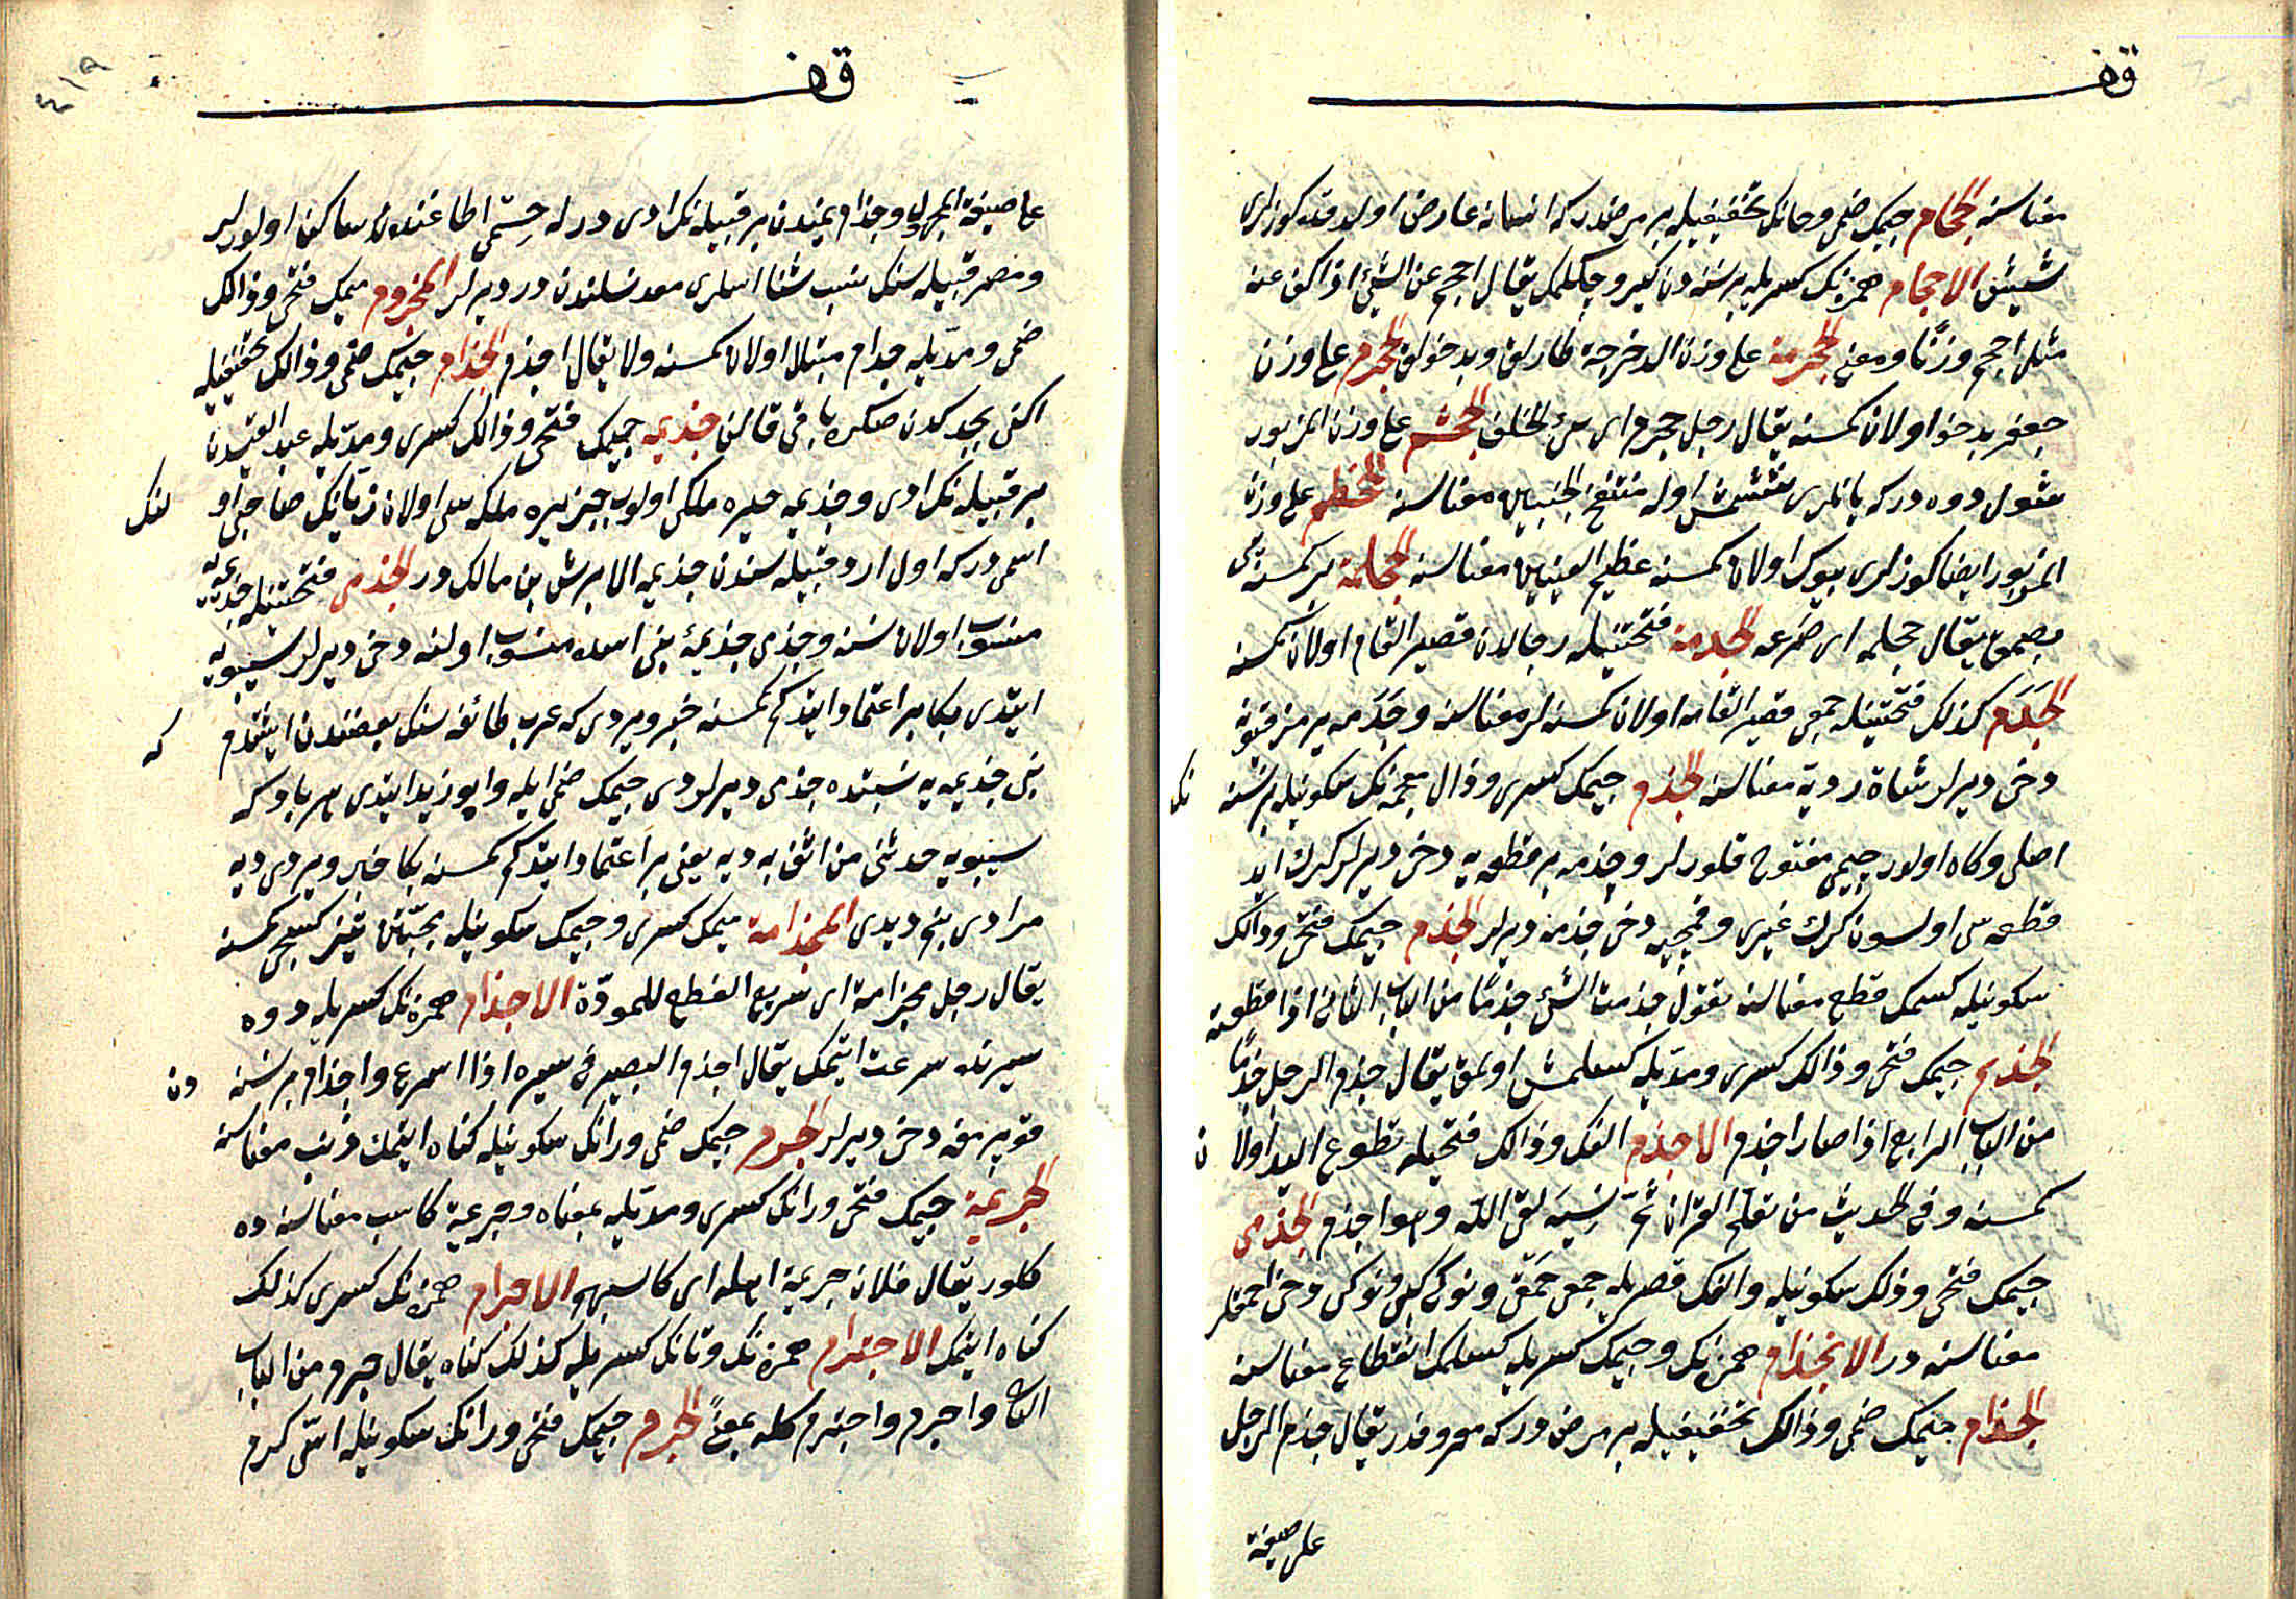 معناسنه الجحام جيمك ضمى و حانك تخفيفيله بر مرضدر كه انسانه عارض اولور قد كوزلرى
شيشر الاحجام همزه نك كسريله بر نسنه دن كيرو چكلمك يقال احجم عن الشئ اذا كف عنه
مثل اجحم وزنًا و معنى الجحرمة على وزن الدحرجة طارلق و بدخولق الجحرم على وزن
جعفر بدخو اولان كمسنه يقال رجل جحرم اى سئ الخلق الجحشم على وزن المزبور
شول دوه در كه يانلرى شيشمش اوله منتفخ الجنبين معناسنه الجحظم على وزن
المزبور ايضا كوزلرى بيوك اولان كمسنه عظيم العينين معناسنه الجحلمة بر كمسنه يى
بصمق يقال جحلمه اى صرعه الجدمة فتحتينله رجالدن قصير القام اولان كمسنه
الجَدَم كذلك فتحتينله جمعى قصير القامه اولان كمسنه لر معناسنه و جَدَمه يرمز قيونه
دخى ديرلر شاة ردية معناسنه الجذم جيمك كسرى و ذال معجمه نك سكونيله بر نسنه نك
اصلى و كاه اولور جيمى مفتوح قلورلر و جذمه بر قطعه يه دخى ديرلر كرك ايپ
قطعه سى اولسون كرك غيرى و قمچيه دخى جذمه ديرلر الجذم جيمك فتحى و ذالك
سكونيله كسمك قطع معناسنه تقول جذمت الشئ جذمًا من الباب الثانى اذا قطعته
الجذم جيمك فتحى و ذالك كسرى و مدّيله كسلمش اولمق يقال جذم الرجل جذمًا
من الباب الرابع اذا صار اجذم الاجذم الفك و ذالك فتحيله مقطوع اليد اولان
كمسنه و فى الحديث من تعلم القرآن ثمّ نَسِيَه لقى الله و هوا جذم الجذمى
جيمك فتحى و ذلك سكونيله و الفك قصريله جمعى حَمْقَى و نوكى كبى و نوكى دخى احمقلر
معناسنه در الانجذام همزه نك و جيمك كسريله كسلمك انقطاع معناسنه
الجذام جيمك ضمى و ذالك تخفيفيله بر مرض در كه معروفدر يقال جذم الرجل
على صيغة
على صيغة المجهول و جذام يمندن بر قبيله نك ادى در له حِسْمى طاغنده ساكن اولورلر
و مضر قبيله سنك نسب شنا اسلرى معد نسلندن در ديرلر المجذوم ميمك فتحى و ذالك
ضمى و مدّيله جذام مبتلا اولان كمسنه و لا يقال اجذم الجذام جيمك ضمى و ذالك تخفيفيله
اكن بچدكدن صكره باقى قالن جذيمه جيمك فتحى و ذالك كسرى و مدّيله عبد القيسدن
بر قبيله نك ادى و جذيمه حيره ملكى اولوب جزيره ملكه سى اولان زبانك صاحبى او لنك
اسمى در كه اول ازد قبيله سندن جذيمه الابرش بن مالك در الجذمى فتحتينله جذيمه يه
منسوب اولان نسنه و جذمى جذيمۀ بنى اسده منسوب اولنه دخى ديرلر سيبويه
ايتدى بكا بر اعتماد ايتدكم كمسنه خبر ويردى كه عرب طائفه سنك بعضندن ايشتدم كه
بنى جذيمه يه نسبتده جذمى ديرلردى جيمك ضمى ايله و ابو زيد ايتدى هر بار كه
سيبويه حدثنى من اثق به ديه يعنى بر اعتماد ايتدكم كمسنه بكا خبر ويردى ديه
مرادى بنم ديدى المجذامة ميمك كسرى و جيمك سكونيله محبّتى تيز كسيجى كمسنه
يقال رجل مجذامة اى سريع القطع للمودّة الاجذام همزه نك كسريله دوه
سيرنده سرعت ايتمك يقال اجذم البعير فى سيره اذا اسرع و اجذام بر نسنه دن
قوپرمغه دخى ديرلر الجرم جيمك ضمى و رانك سكونيله كناه ايتمك ذنب معناسنه
الجريمة جيمك فتحى و رانك كسرى و مدّيله بمعناه و جريمة كاسب معناسنه ده
كلور يقال فلان جريمة اهله اى كاسبهم الاجرام همزه نك كسرى كذلك
كناه ايتمك الاجترام همزه نك و تانك كسريله كذلك كناه يقال جرم من الباب
الثانى و اجرم و اجترم كله بمعنىً الجرم جيمك فتحى و رانك سكونيله اسّى كرم